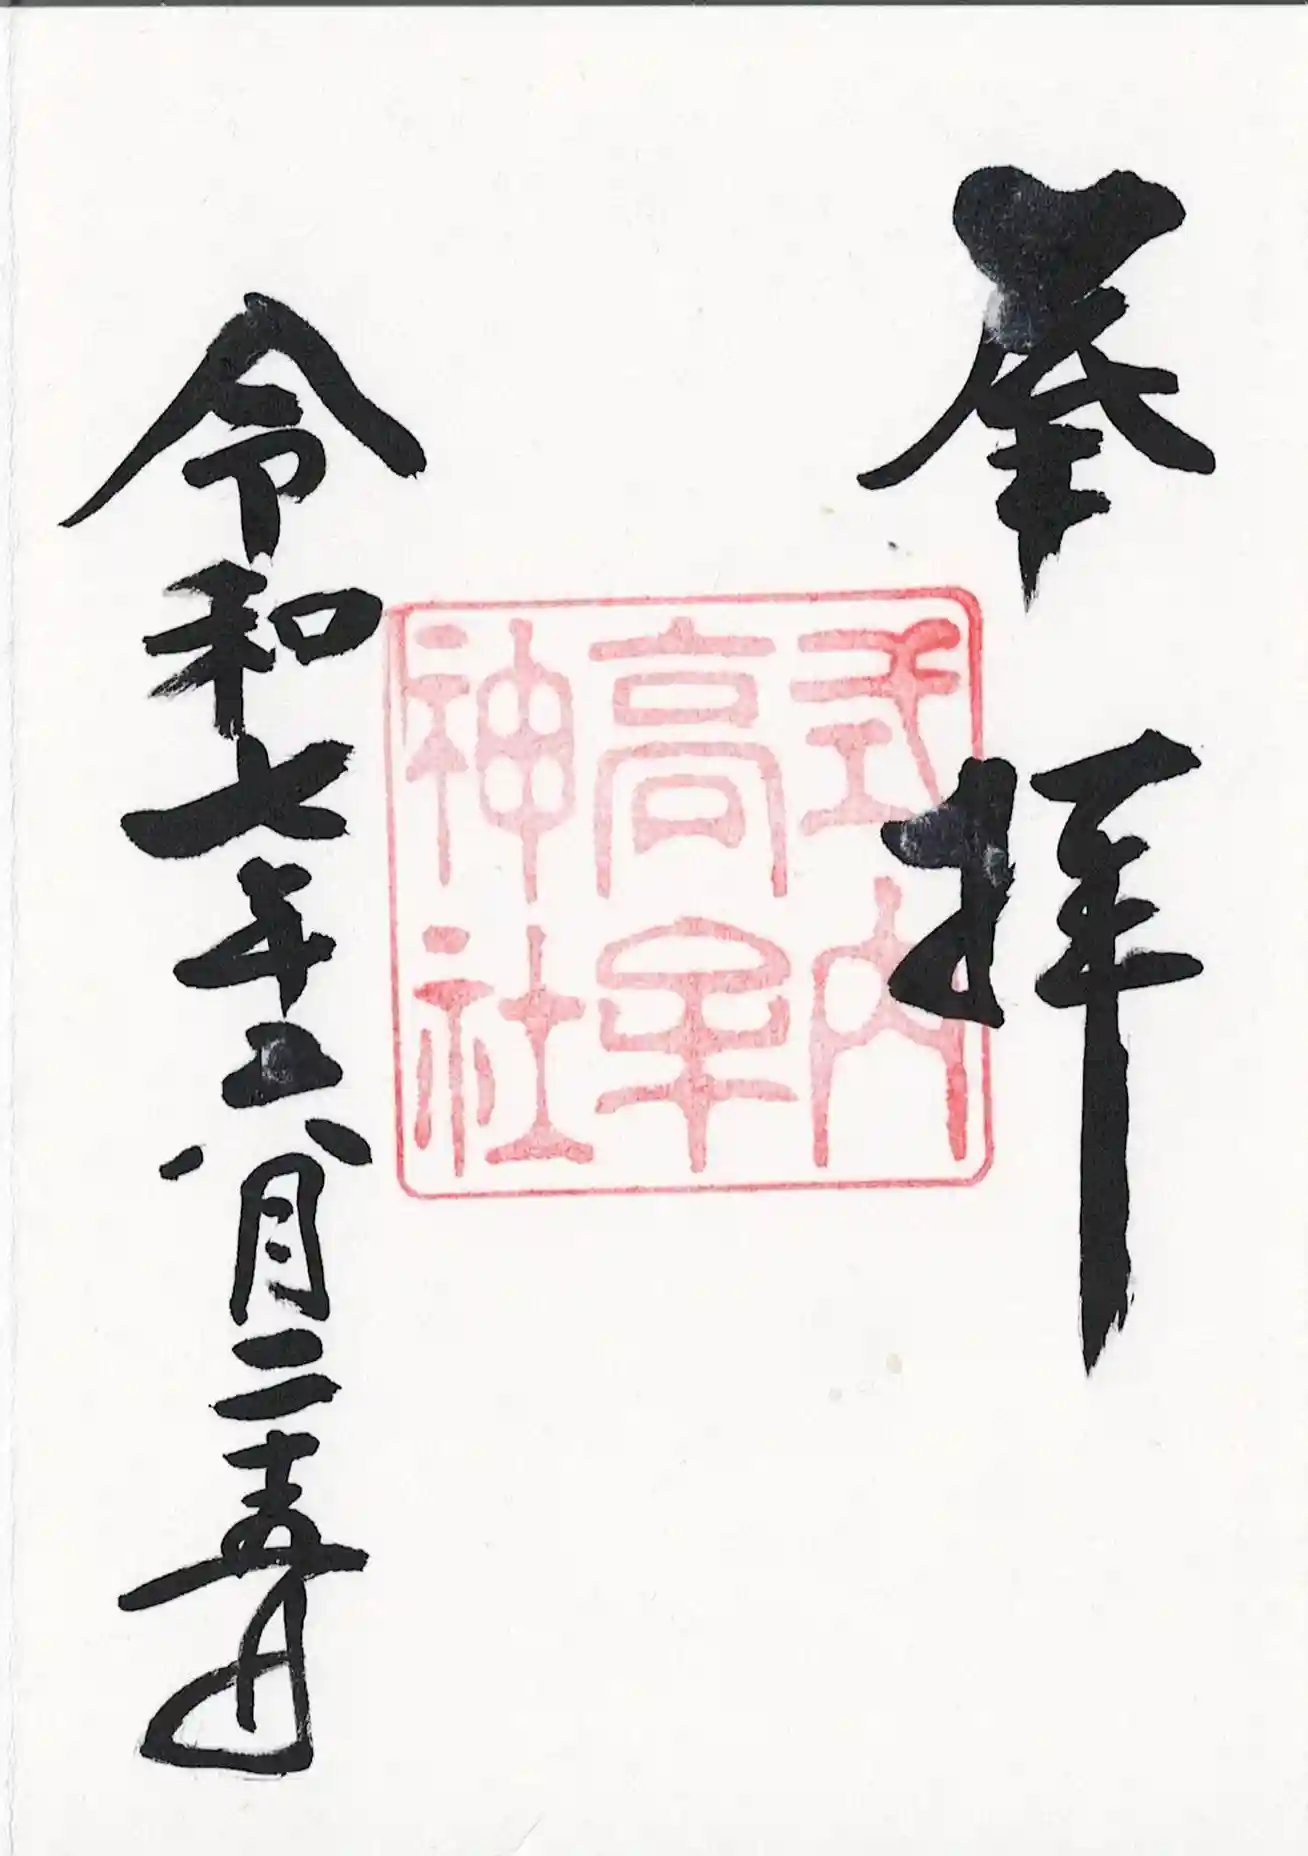 奉拝
式内
高牟
神社
令和七年六月二十五日